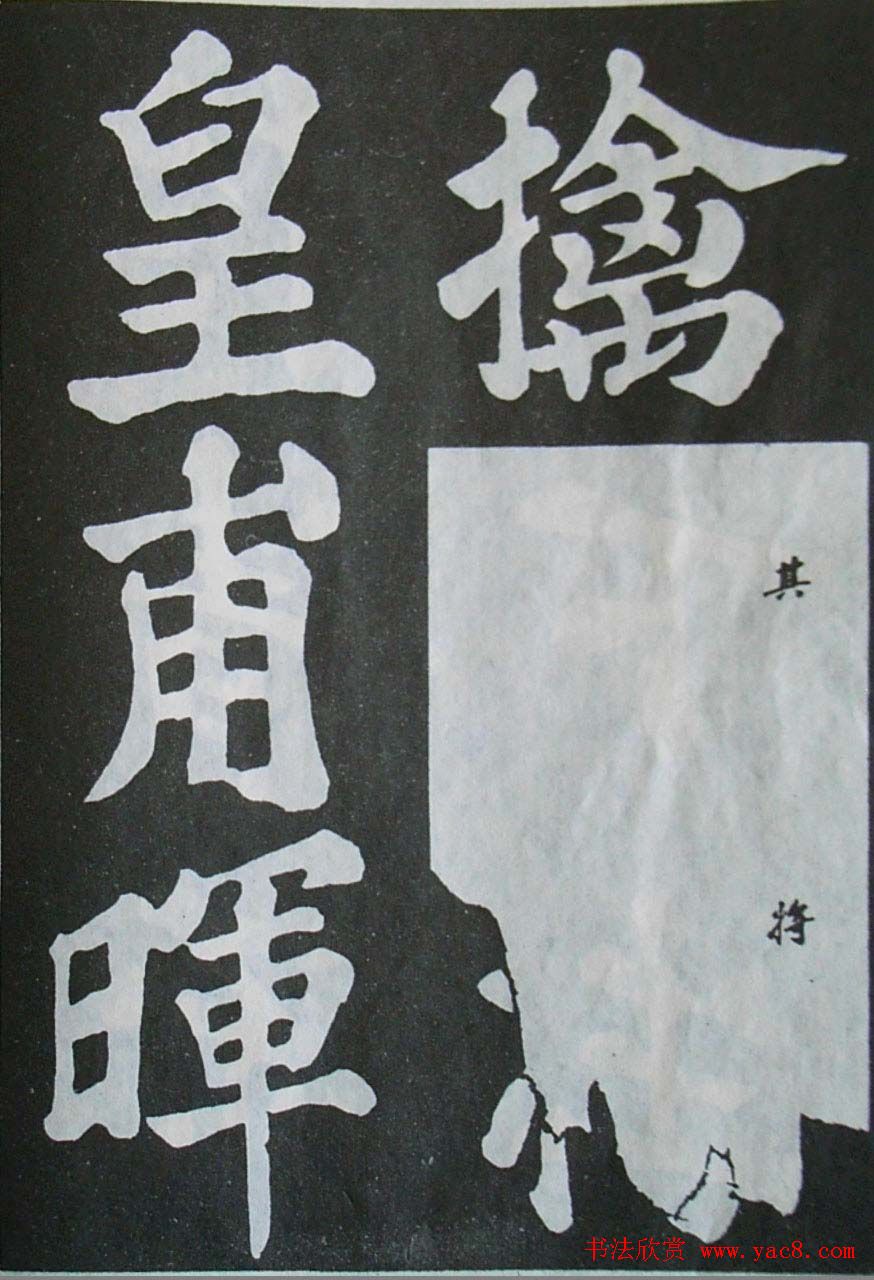 擒其将
皇甫暉
书法欣赏 www.yac8.com